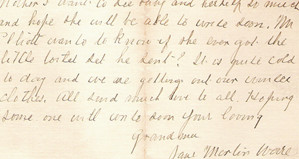 want to see baby and herself so much
and hope she will be able to write soon. Mr
Elliott wants to know if she ever got the
little toilet set he sent? It is quite cold
to day and we are getting out our winter
clothes. All send much love to all Hoping
some one will write soon Your loving
Grandma
Jane Martin